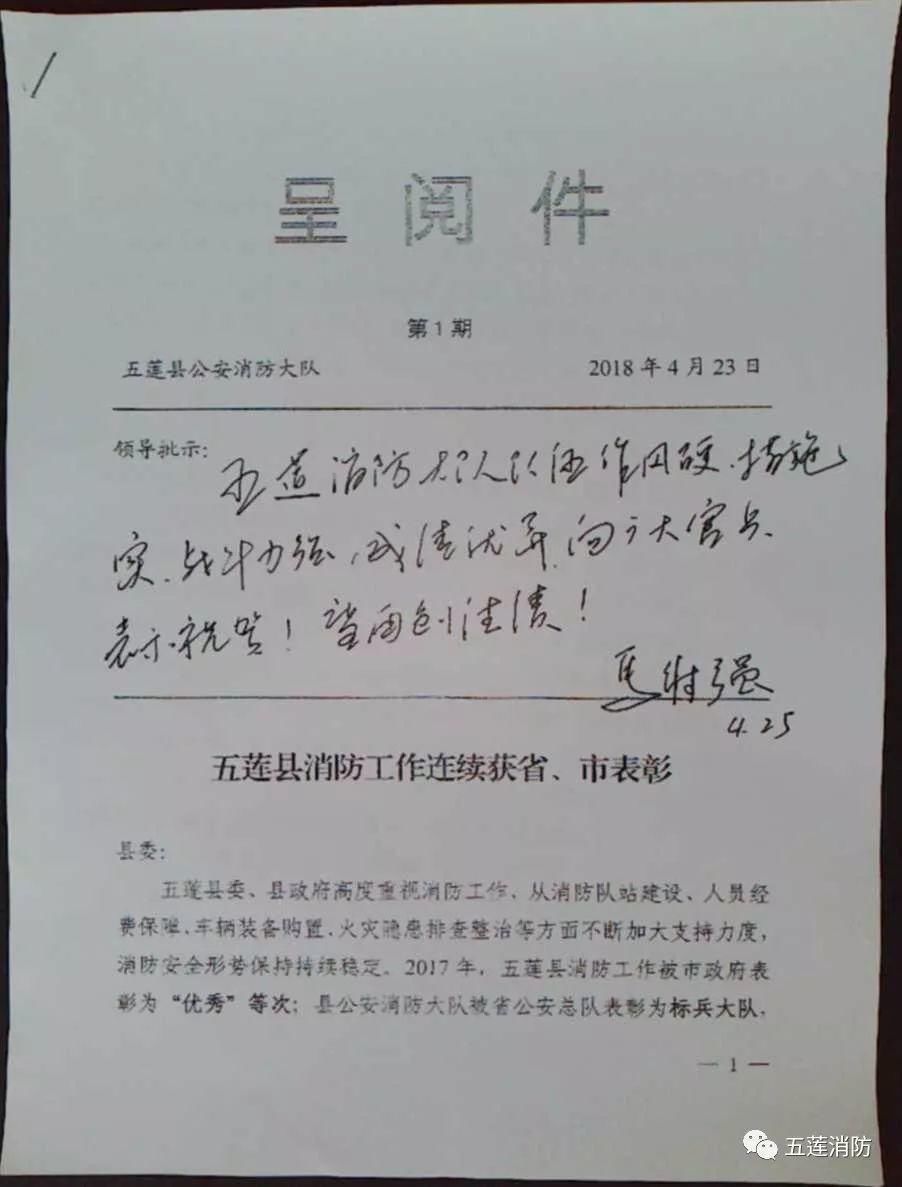 呈阅件
第1期
五莲县公安消防大队 2018年4月23日
领导批示:
五莲消防大队队伍作风硬、措施
实、战斗力强、成绩优异,向广大官兵
表示祝贺!望再创佳绩!
马树强
4.25
五莲县消防工作连续获省、市表彰
县委:
五莲县委、县政府高度重视消防工作,从消防队站建设、人员经
费保障、车辆装备购置、火灾隐患排查整治等方面不断加大支持力度,
消防安全形势保持持续稳定。2017年,五莲县消防工作被市政府表
彰为“优秀”等次;县公安消防大队被省公安总队表彰为标兵大队,
— 1 —
五莲消防